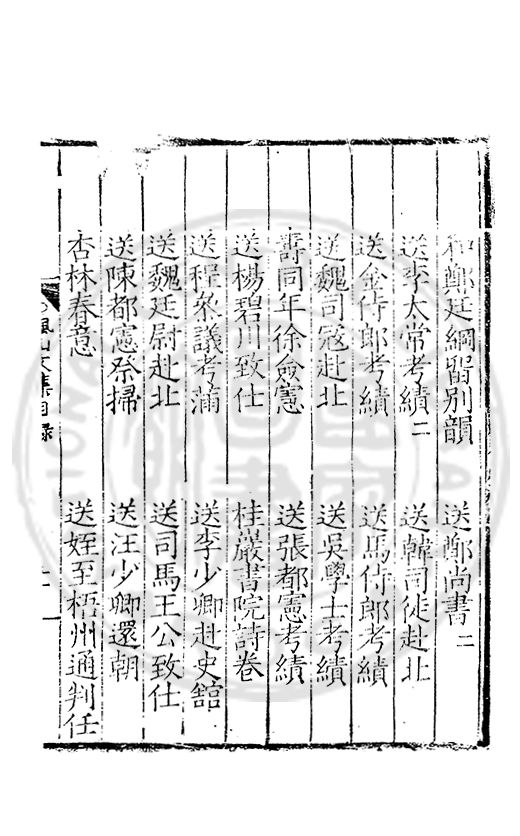 和鄭廷綱留別韻　送鄭尚書二
送李太常考績二　送韓司徒赴北
送金侍郎考績　送馬侍郎考績
送魏司寇赴北　送吳學士考績
壽同年徐僉憲　送張都憲考績
送楊碧川致仕　桂巖書院詩卷
送程叅議考滿　送李少卿赴史舘
送魏廷尉赴北　送司馬王公致仕
送陳都憲祭掃　送汪少卿還朝
杏林春意　送姪至梧州通判任
山文集目錄